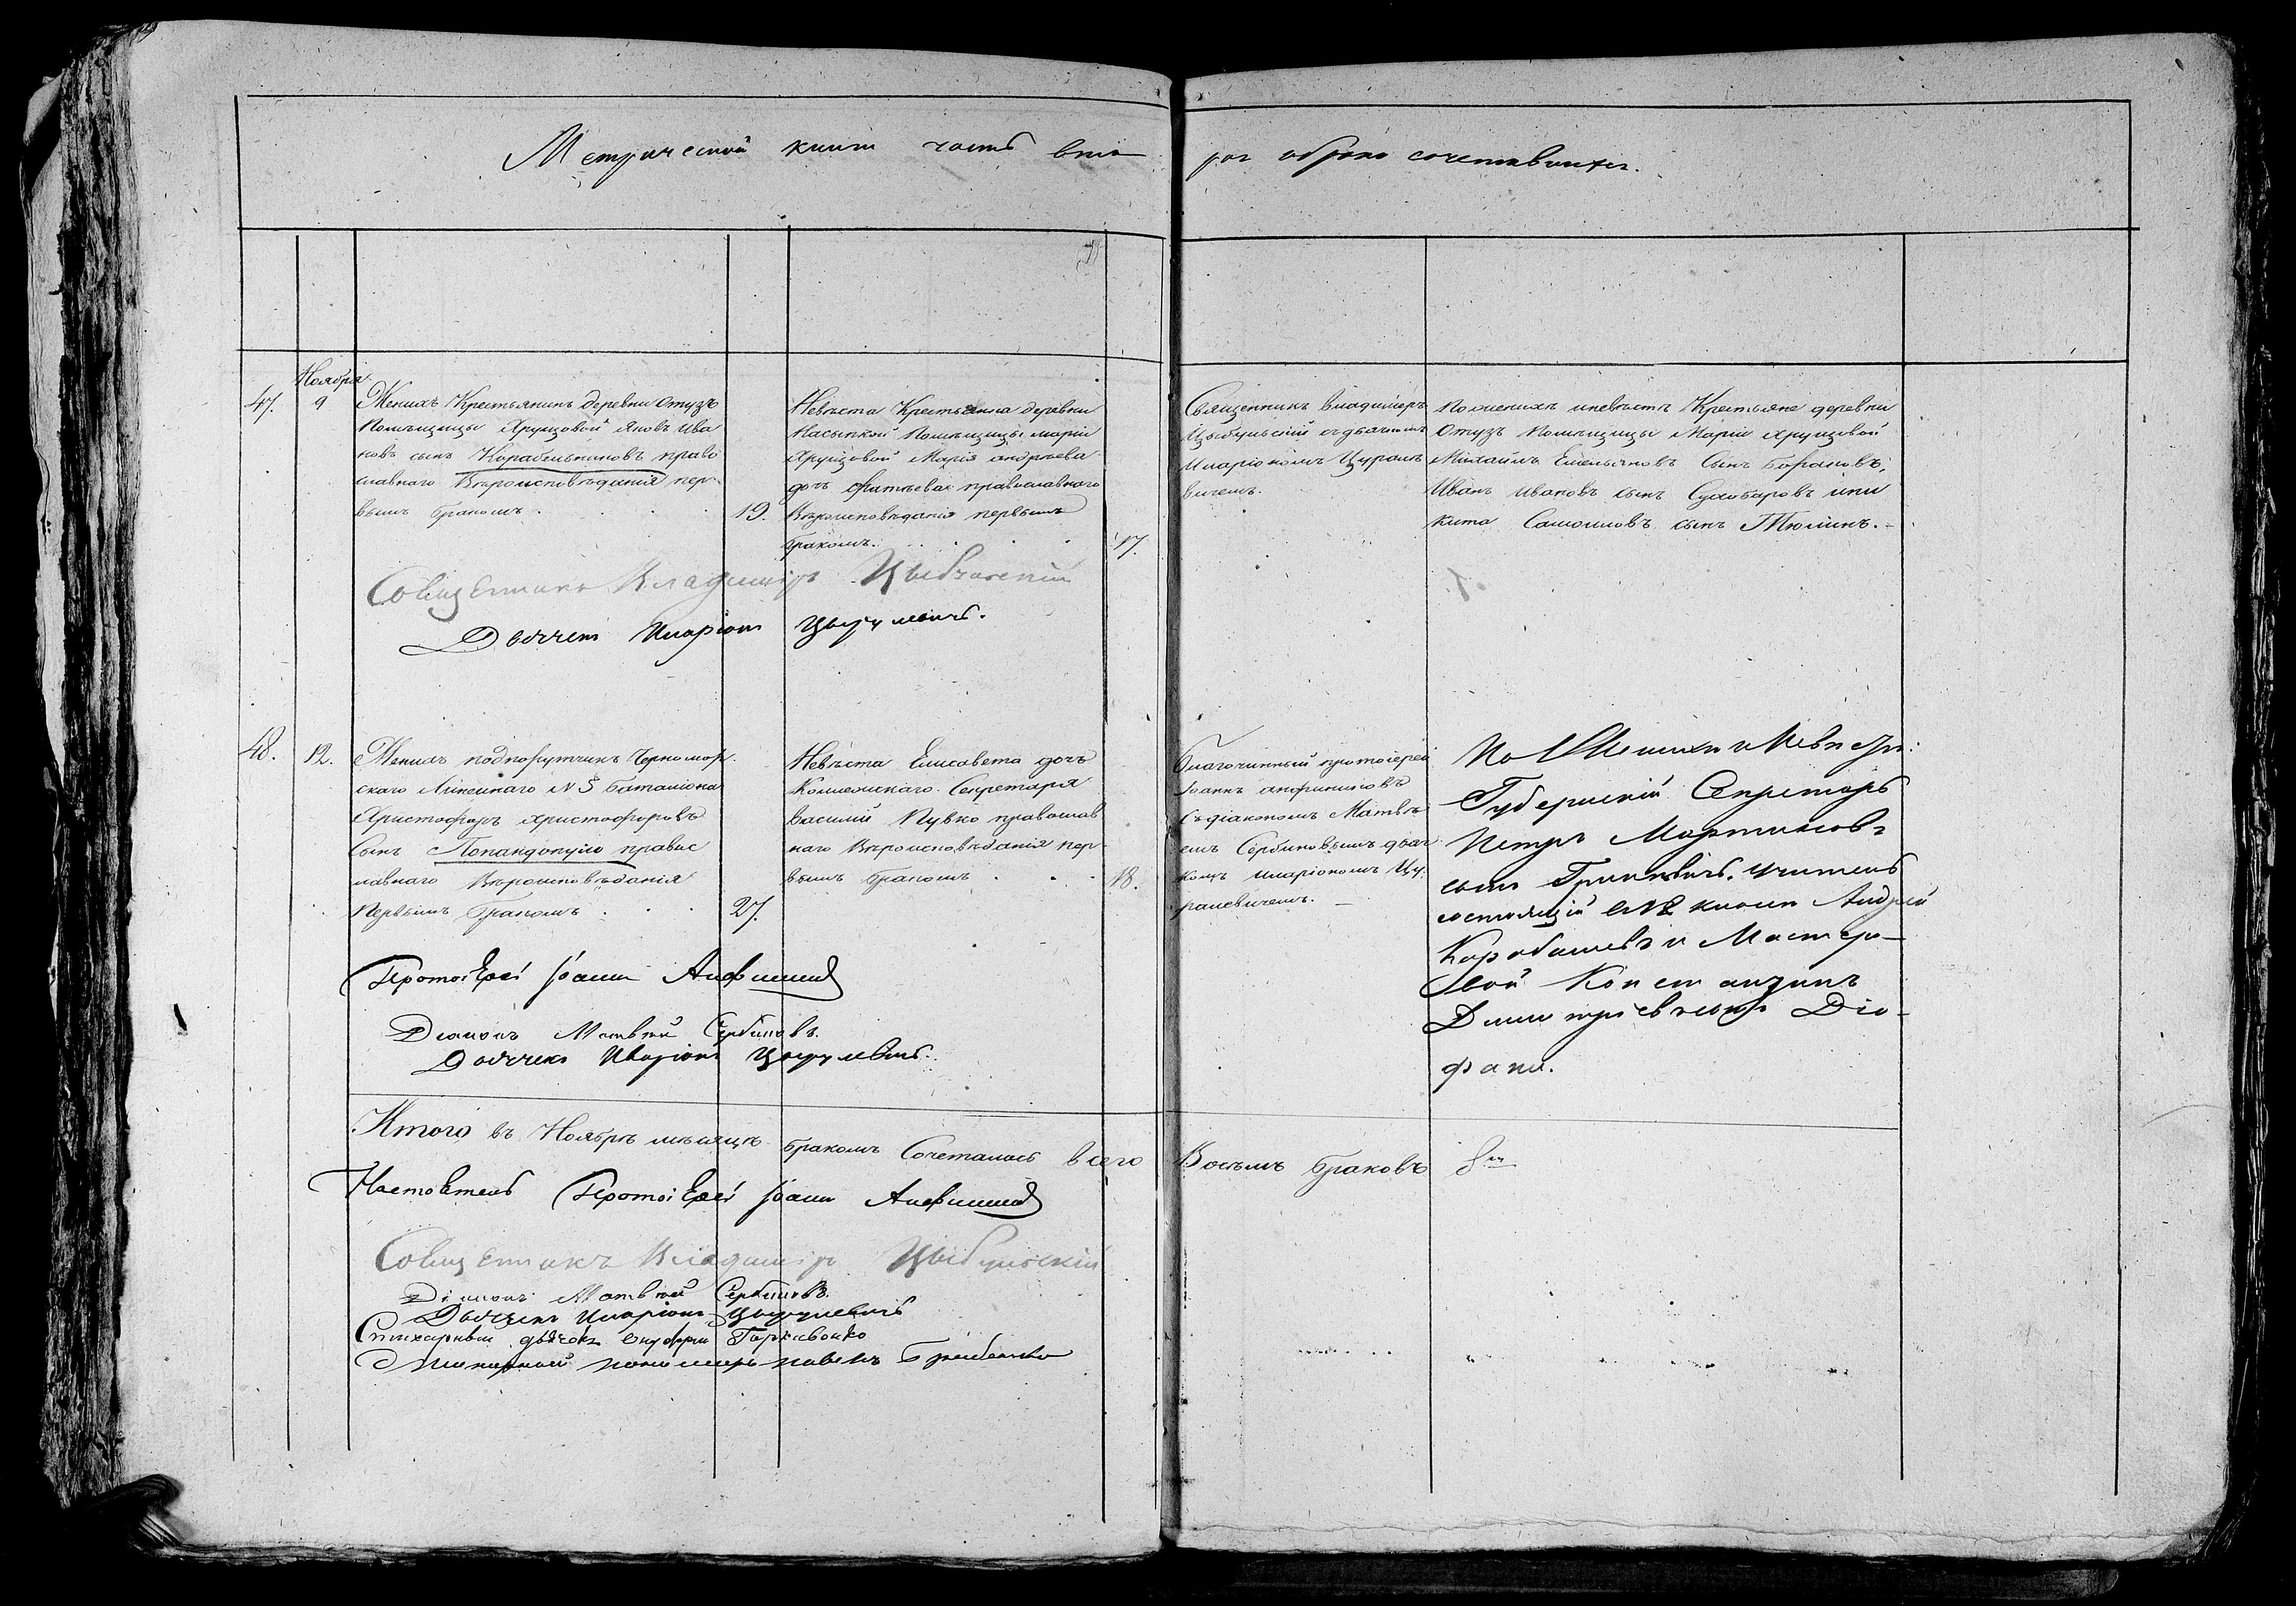 Метрической книги часть вто
рая о бракосочетавшихся.
Ноября
47.
9
Женихъ Крестьянинъ деревни Отузъ
Помѣщицы Хрущовой Яковъ Ива
новъ сынъ Корабельниковъ право
славнаго Вѣроисповѣданія пер-
вымъ бракомъ
19.
Невѣста Крестьянка деревни
Насыпкой Помѣщицы Маріи
Хрущовой Марія Андреева
дочь православнаго
Вѣроисповѣданія первымъ
бракомъ.
17.
Священникъ Владимиръ
Цыбульскій съ дьячкомъ
Иларіономъ Цурале
вичемъ.
По женихѣ и невѣстѣ Крестьяне деревни
Отузъ Помѣщицы Маріи Хрущовой
Михаилъ Емельяновъ Сынъ
Иванъ Ивановъ сынъ и Ни
кита Самойловъ сынъ Тюминъ.
Священникъ Владимиръ Цыбульскій
Дьячекъ Иларіонъ
48.
12.
Женихъ подпорутчикъ Черномор-
скаго Линейнаго № 5 Баталіона
Христофоръ Христофоровъ
Сынъ Попандопуло правос
лавнаго Вѣроисповѣданія
Первымъ бракомъ
27.
Невѣста Елисавета дочь
Коллежскаго Секретаря
Василия православ
наго Вѣроисповѣданія пер-
вымъ бракомъ
18.
Благочинный протоіерей
Іоаннъ Анфиногеновъ
Съ діакономъ Матвѣ
емъ Сербиновымъ дьяч
комъ Иларіономъ Цу
ралевичемъ.
По Женихѣ и Невѣстѣ:
Губернскій Секретарь
Петръ Мартиновъ
сынъ учитель
состоящій Андрей
и Мастеро-
вой Константинъ
Дмитріевъ сынъ Діо-
фани.
Протоіерей Іоаннъ
Діаконъ Матвѣй Сербиновъ.
Дьячекъ Иларіонъ
Итого въ Ноябрѣ мѣсяцѣ бракомъ Сочеталось всего
Восемь браковъ 8мь
Настоятель Протоіерей Іоаннъ
Священникъ Владимиръ Цыбульскій
Діаконъ Матвѣй Сербиновъ.
Дьячекъ Иларіонъ
Стихарный дьячокъ Онуфрій
пономарь Павелъ